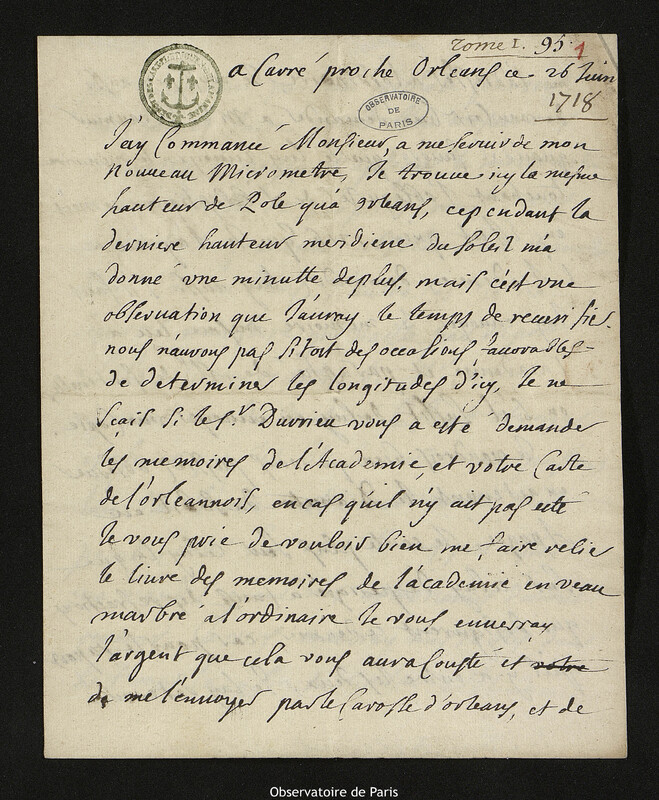 Tome I. 95. 1
a Carré proche Orleans ce 26 Juin
1718
OBSERVATOIRE
DE
PARIS
J'ay Commancé Monsieur, a me servir de mon
nouveau Micrometre, Je trouve icy la mesme
hauteur de Pole qu'a orleans, cependant la
derniere hauteur meridiene du soleil m'a
donné vne minutte de plus, mais c'est vne
observation que J'auray le temps de reverifier.
nous n'avons pas sitost des occasions favorables
de determiner les longitudes d'icy, Je ne
scais si le Sr. Durrieu vous a esté demander
les memoires de l'Academie, et votre Carte
de l'orleannois, en cas qu'il n'y ait pas esté
Je vous prie de vouloir bien me faire relie
le livre des memoires de l'academie en veau
marbré a l'ordinaire Je vous enverray
l'argent que cela vous aura Cousté et votre
de me l'envoyer par le Carosse d'orleans, et de
Observatoire de Paris